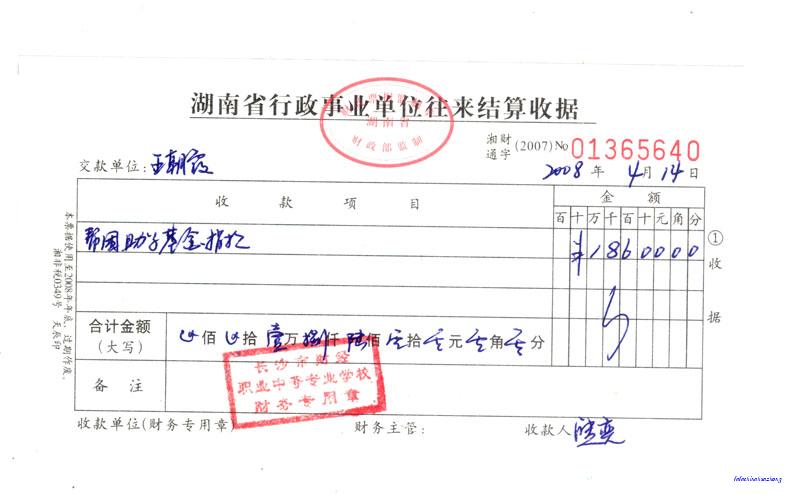 湖南省行政事业单位往来结算收据
湖南省
财政部监制
湘财通字 (2007) No 01365640
交款单位: 王朝霞 2008 年 4 月 14 日
收款项目 金额
百 十 万 千 百 十 元 角 分
帮困助学基金捐款 ¥ 1 8 6 0 0 0 0
合计金额 (大写) 佰 拾 壹万 捌仟 陆佰 零拾 零元 零角 零分
备注
长沙市财经
职业中等专业学校
财务专用章
收款单位(财务专用章) 财务主管: 收款人
① 收据
本票据使用至2008年年底,过期作废。
湘非税0349号 天辰印